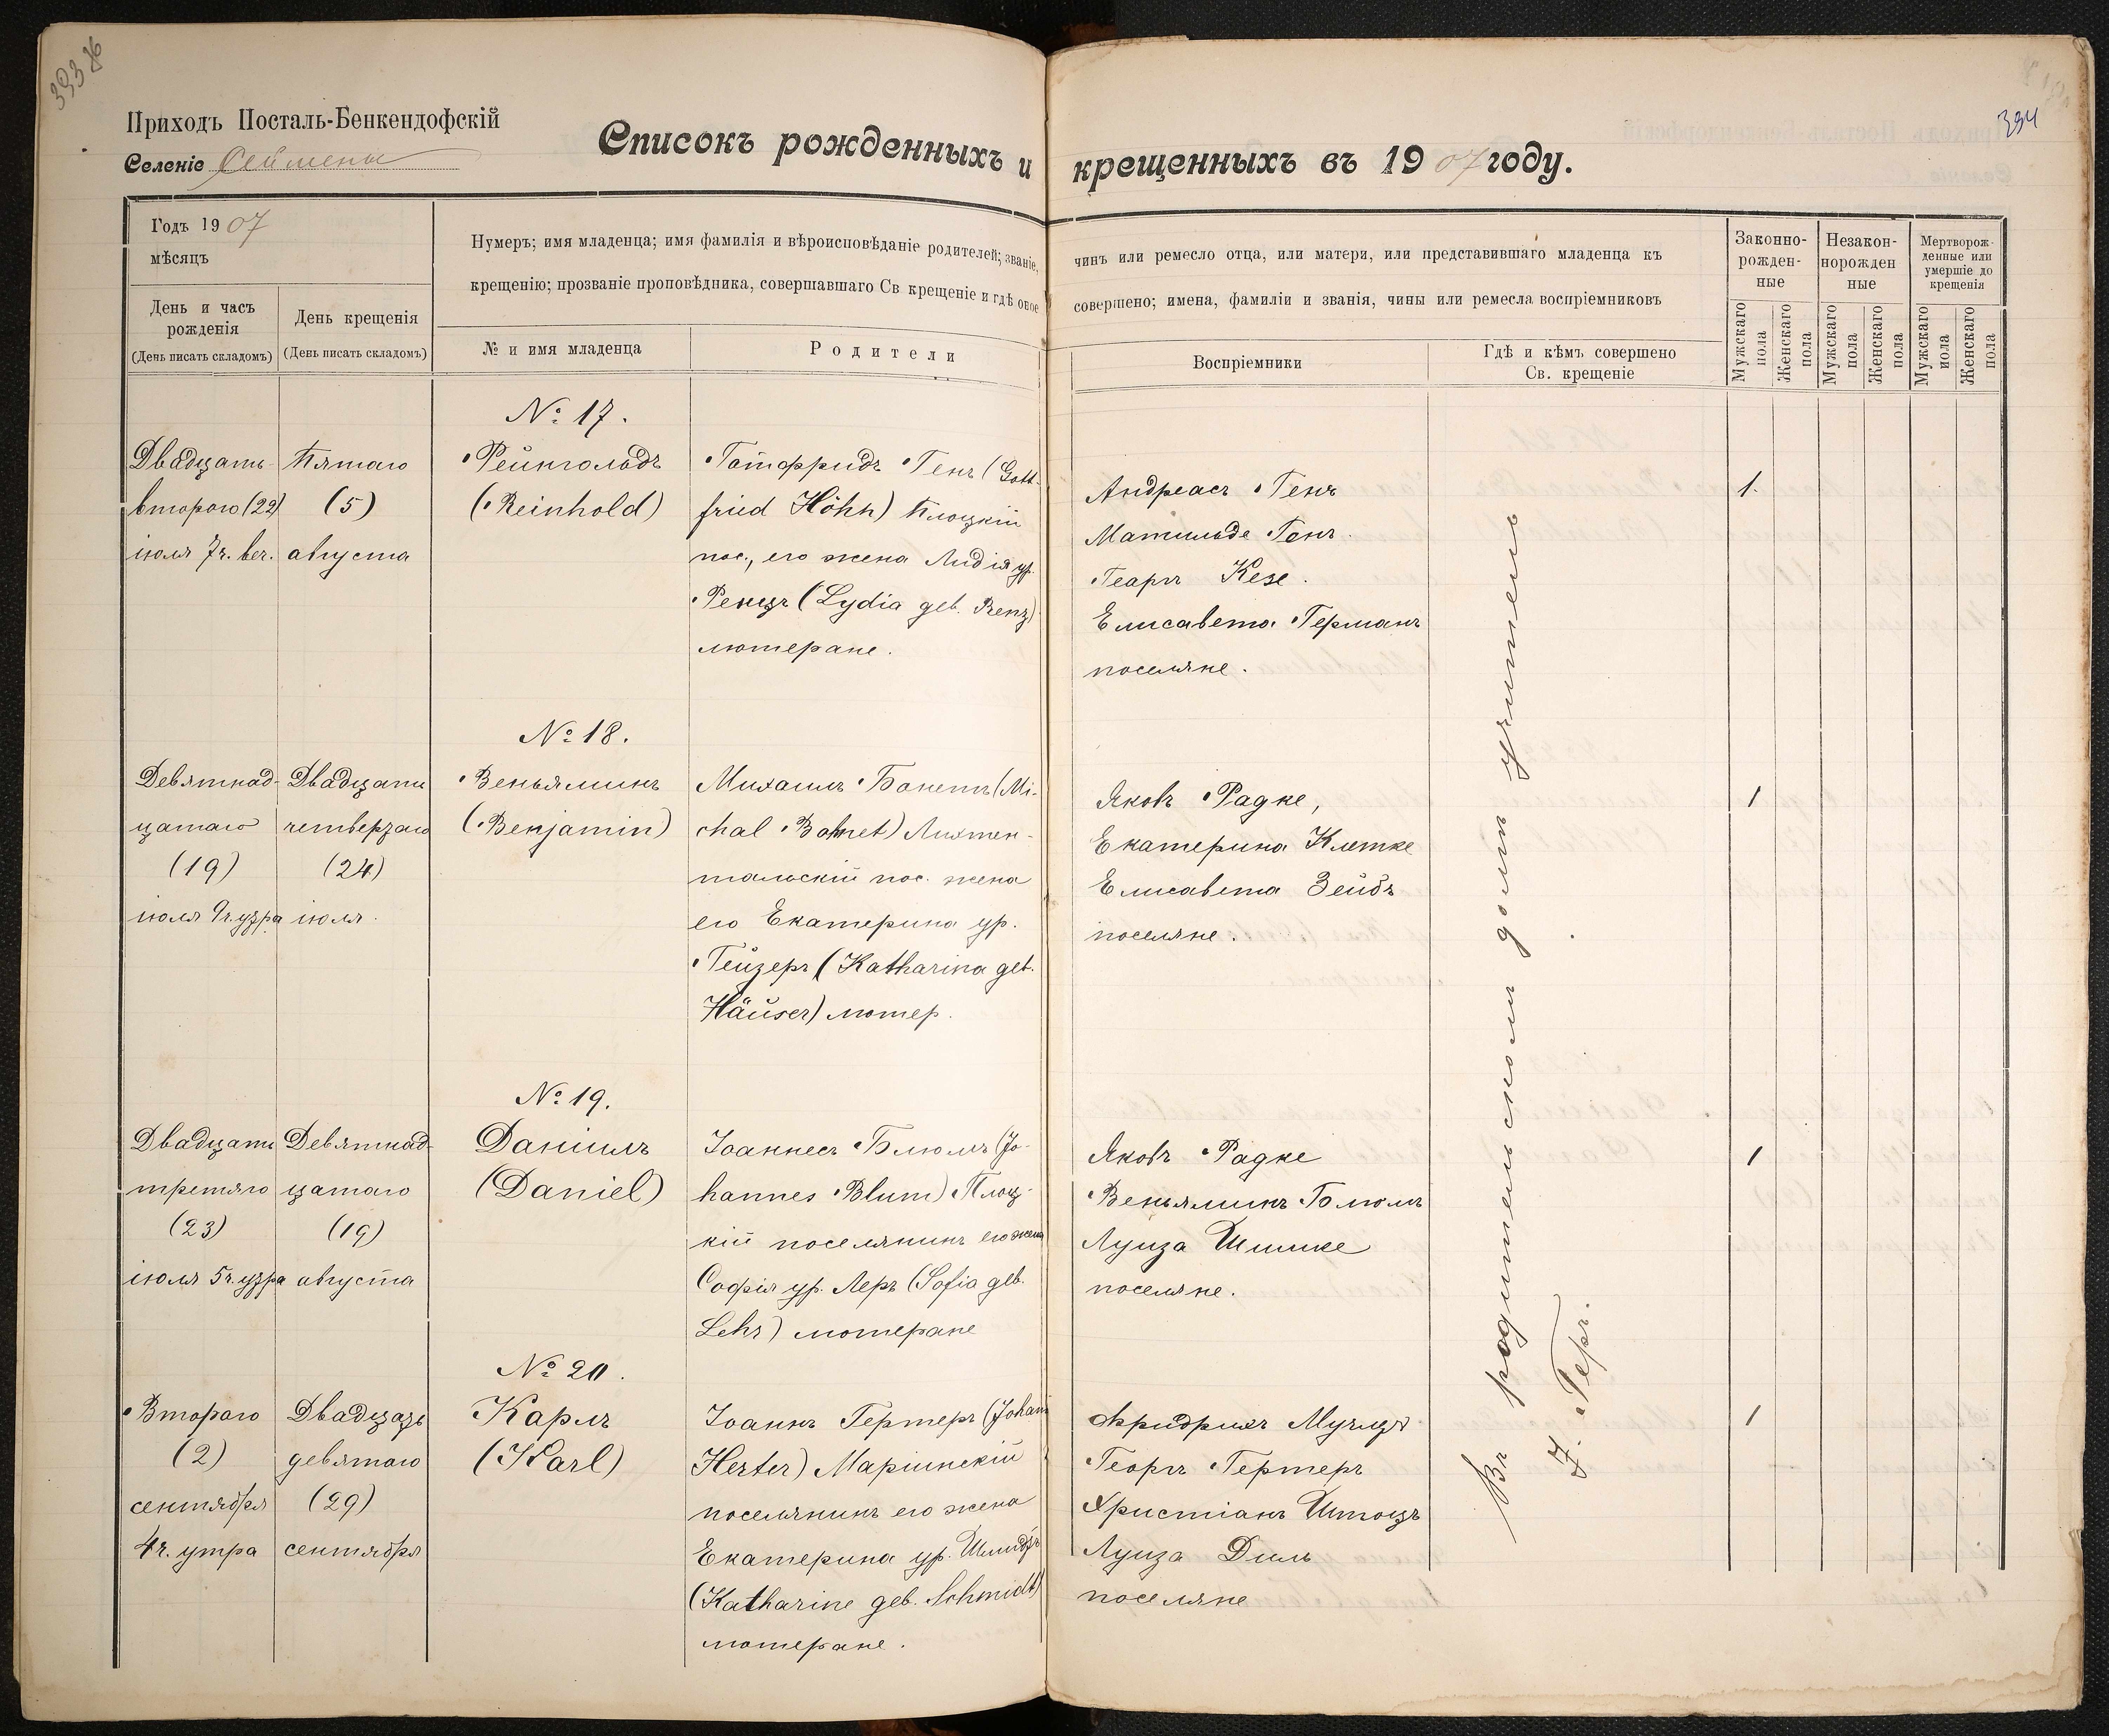 393
394
Приходъ Посталь-Бенкендофскій
Селеніе Сеймены
Списокъ рожденныхъ и крещенныхъ въ 1907 году.
Годъ 1907
мѣсяцъ
День и часъ рожденія
(День писать складомъ)
День крещенія
(День писать складомъ)
Нумеръ; имя младенца; имя фамилія и вѣроисповѣданіе родителей; званіе,
чинъ или ремесло отца, или матери, или представившаго младенца къ
крещенію; прозваніе проповѣдника, совершавшаго Св крещеніе и гдѣ овое
совершено; имена, фамиліи и званія, чины или ремесла воспріемниковъ
№ и имя младенца
Родители
Воспріемники
Гдѣ и кѣмъ совершено
Св. крещеніе
Законно-
рожден-
ные
Незакон-
норожден
ные
Мертворож-
денные или
умершіе до
крещенія
Мужскаго пола
Женскаго пола
Мужскаго пола
Женскаго пола
Мужскаго пола
Женскаго пола
№ 17.
Двадцать
второго (22)
іюля 7ч. веч.
Пятаго
(5)
августа
Рейнгольдъ
(Reinhold)
Готфридъ Генъ (Gott-
fried Höhn) Плоцкій
пос., его жена Лидія ур.
Ренцъ (Lydia geb. Renz)
лютеране.
Андреасъ Генъ
Матильде Генъ.
Георгъ Кезе.
Елисавета Германъ
поселяне.
1.
№ 18.
Девятнад-
цатаго
(19)
іюля 9ч. утра
Двадцать
четвертаго
(24)
іюля.
Веньяминъ
(Benjamin)
Михаилъ Бонетъ (Mi-
chal Bohnet) Лихтен-
тальскій пос. жена
его Екатерина ур.
Гейзеръ (Katharina geb.
Häuser) лютер.
Яковъ Радке,
Екатерина Клетке
Елисавета Зейбъ
поселяне.
1
№ 19.
Двадцать
третяго
(23)
іюля 5ч. утра
Девятнад-
цатаго
(19)
августа
Даніилъ
(Daniel)
Іоаннесъ Блюмъ (Jo-
hannes Blum) Плоц-
кій поселянинъ его жена
Софія ур. Леръ (Sofia geb.
Lehr) лютеране
Яковъ Радке
Веньяминъ Блюмъ
Луиза Шишке
поселяне.
1
№ 20.
Второго
(2)
сентября
4ч. утра
Двадцать
девятого
(29)
сентября
Карлъ
(Karl)
Іоаннъ Гертеръ (Johann
Herter) Маріинскій
поселянинъ его жена
Екатерина ур. Шмидтъ
(Katharine geb. Schmidt)
лютеране.
Фридрихъ
Георгъ Гертеръ
Христіанъ Штоцъ
Луиза Диль
поселяне
1
Въ родительскомъ домѣ учитель